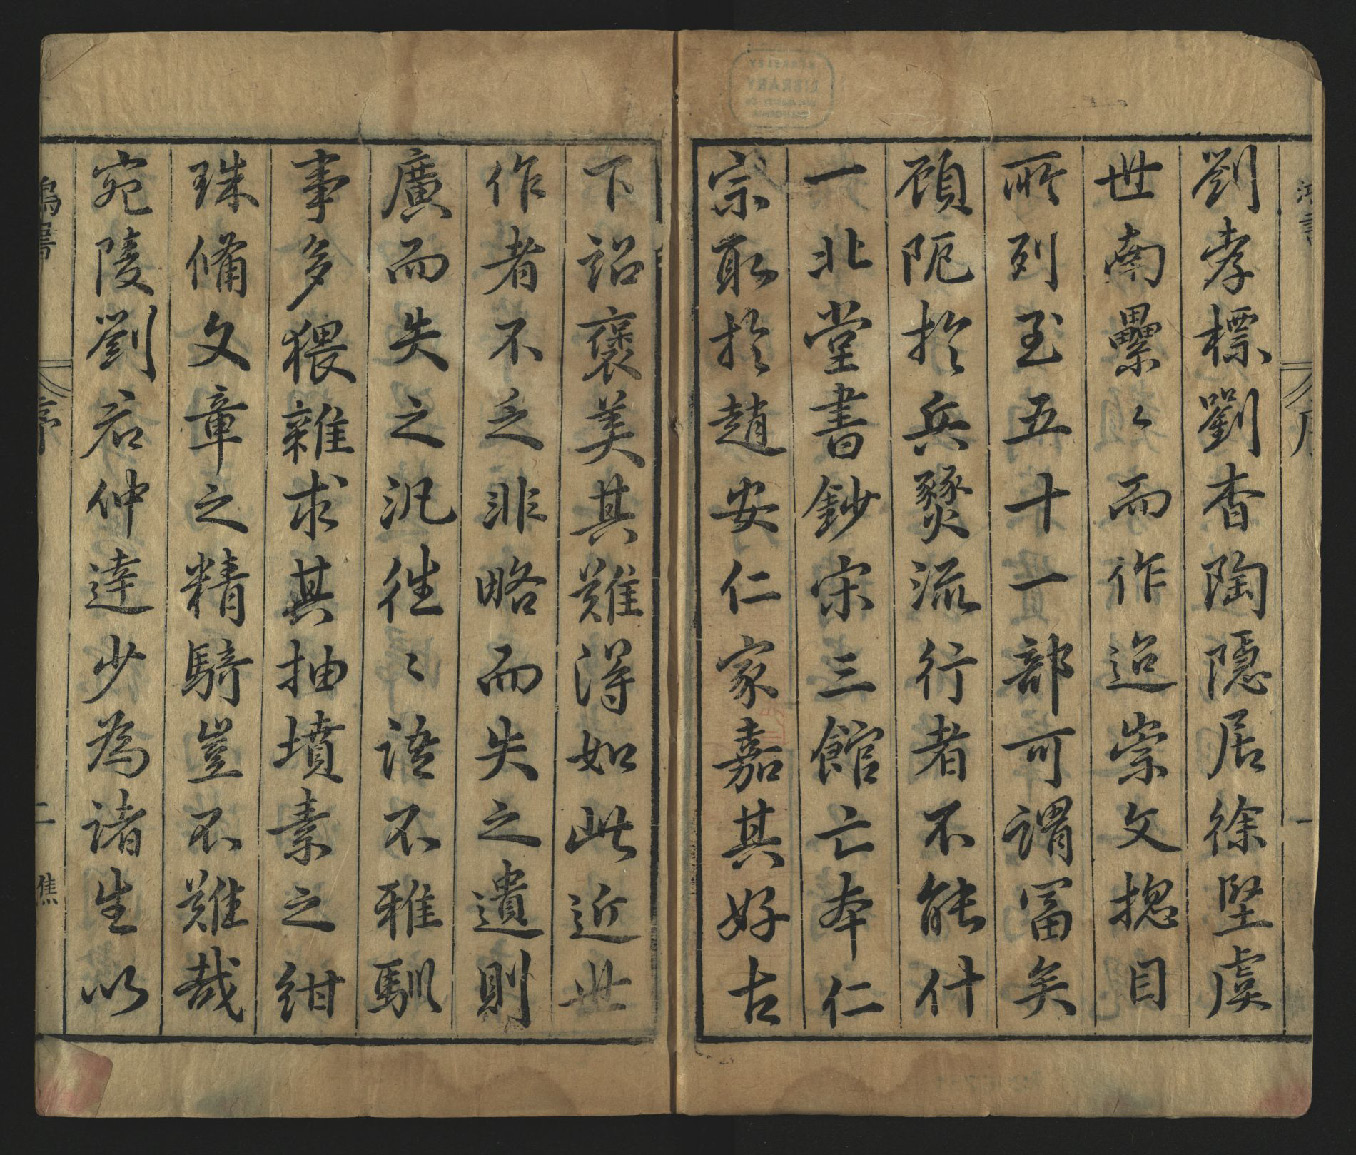 劉孝標劉杳陶隱居徐堅虞
世南纍〻而作迨崇文揔目
所列至五十一部可謂冨矣
顧阨扵兵燹流行者不能什
一北堂書鈔宋三館亡本仁
宗取扵趙安仁家嘉其好古
下詔褒美其難得如此近世
作者不乏非略而失之遺則
廣而失之汜徃〻語不雅馴
事多猥雜求其抽墳素之紺
珠備文章之精騎豈不難哉
宛陵劉君仲達少為諸生以
鴻書
序
二